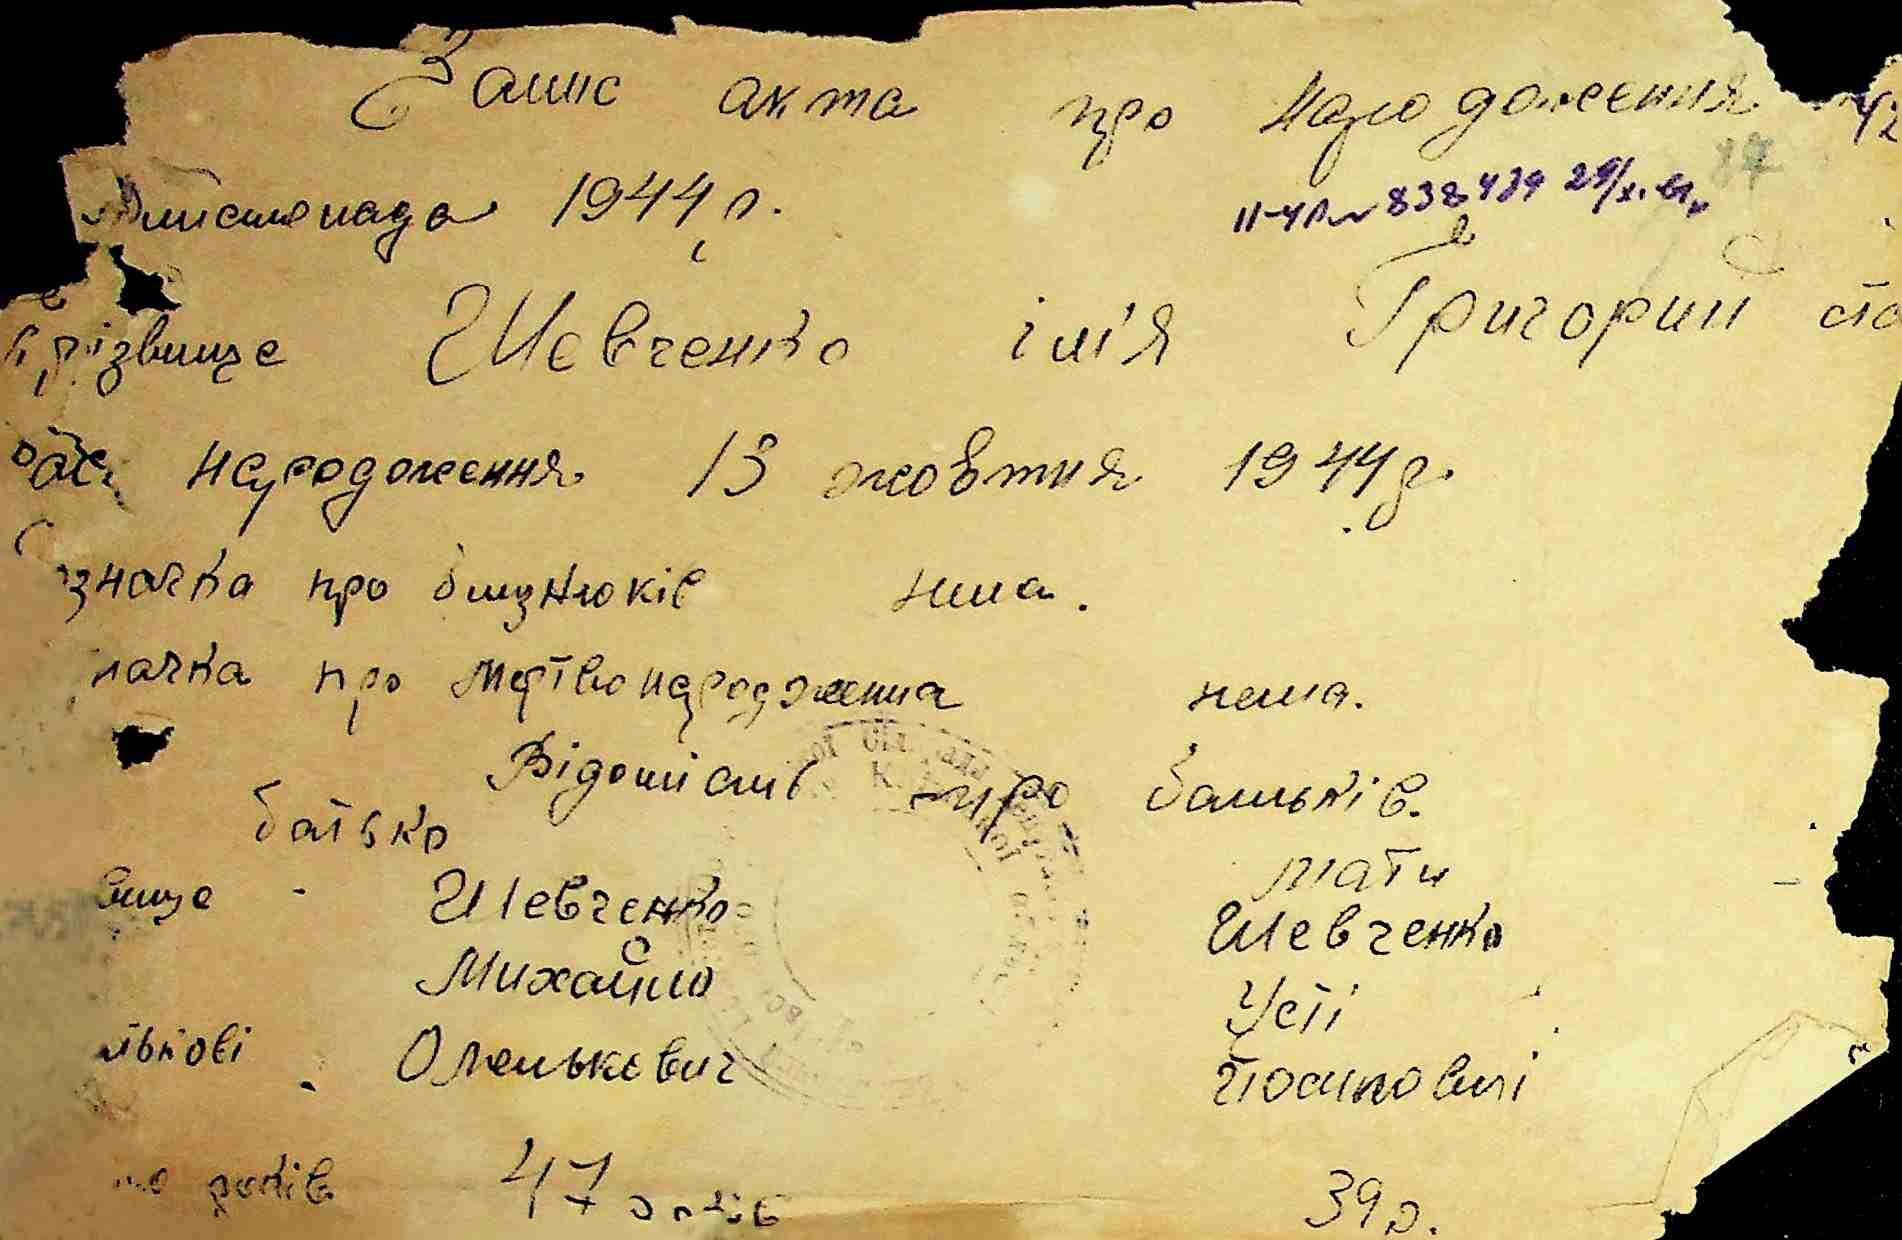 Запис акта про народження
листопада 1944 р.
II-УР № 838439 29/XI
87
Прізвище Шевченко ім'я Григорий
народження 13 жовтня 1944 р.
значка про близнюків нима.
начка про мертвонародження нема.
Відомість про батьків.
батько мати
вище - Шевченко Шевченко
Михайло Усті
тькові Олелькович Йосиповні
но років 47 років 39 р.